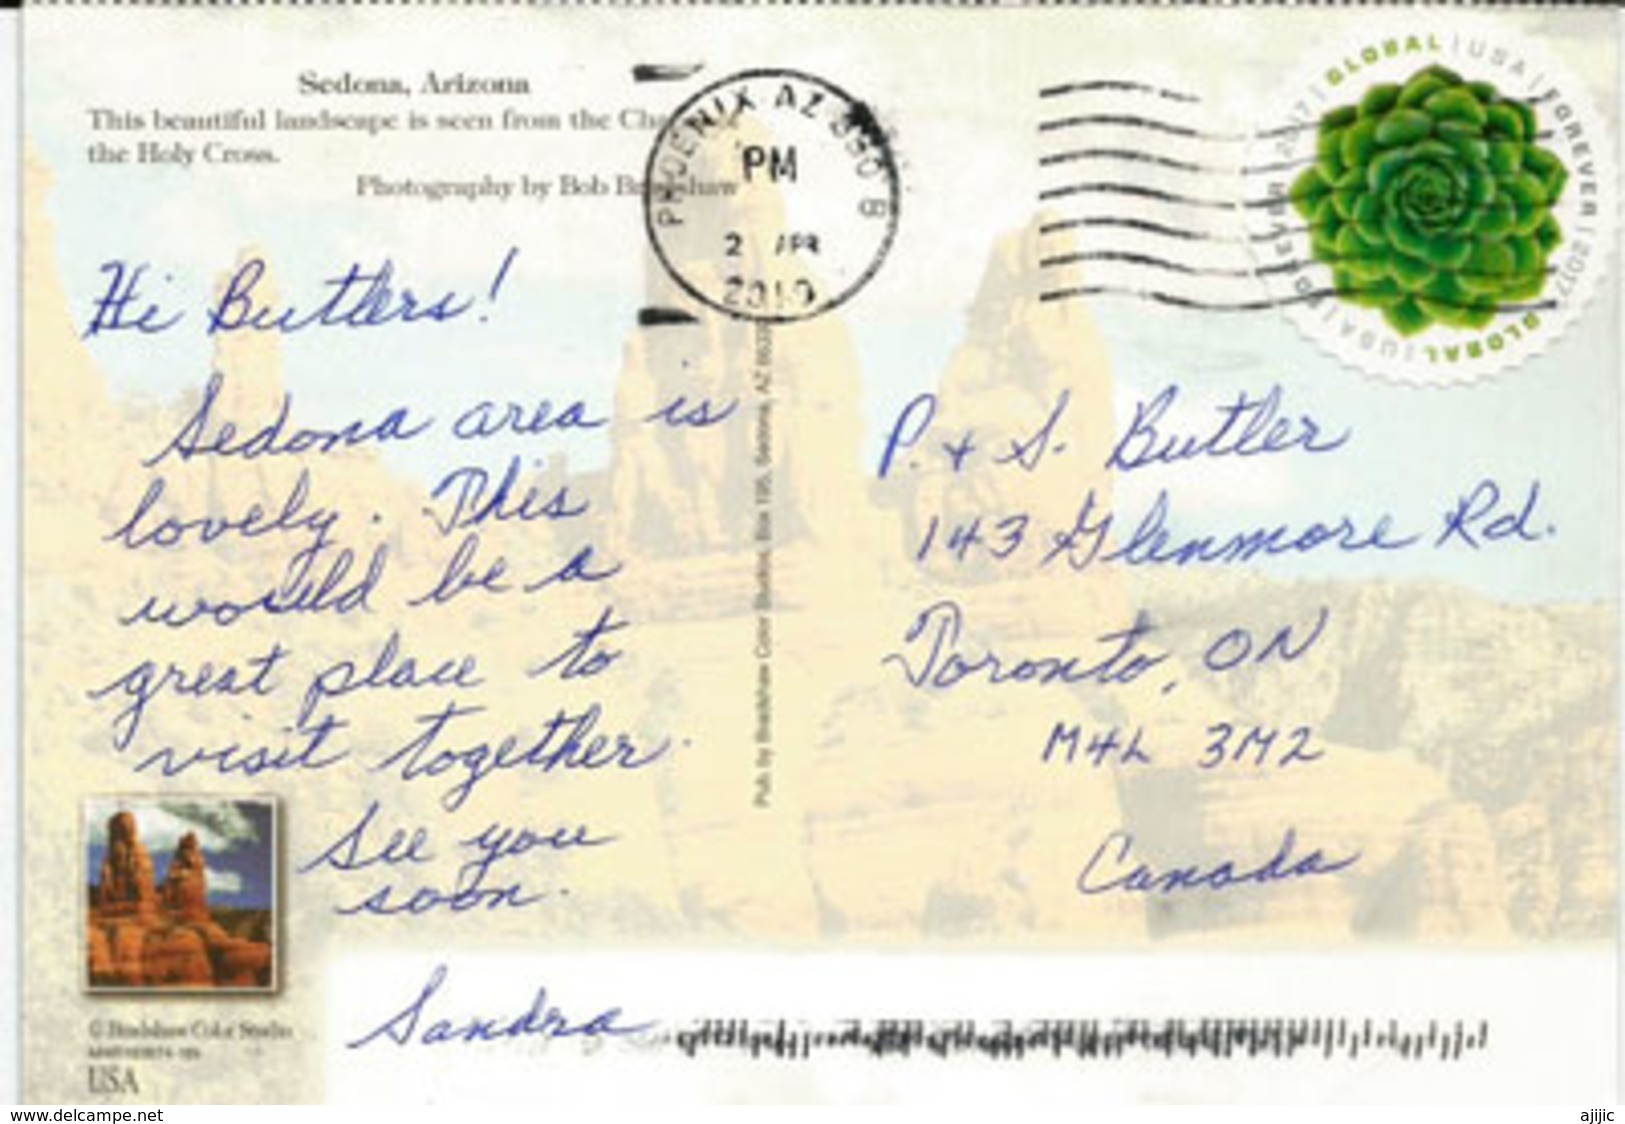 Sedona, Arizona
This beautiful landscape is seen from the
the Holy Cross.
Photography by Bob
PHOENIX AZ
PM
2 APR
GLOBAL | USA | FOREVER | 2017
GLOBAL | USA | FOREVER 2017
Hi Butlers!
Sedona area is
lovely. This
would be a
great place to
visit together.
See you
soon.
Sandra
Pub by Bradshaw Color Studios, Box 195, Sedona, AZ
P. + S. Butler
143 Glenmore Rd.
Toronto, ON
M4L 3M2
Canada
© Bradshaw Color Studio
USA
www.delcampe.net
ajijic